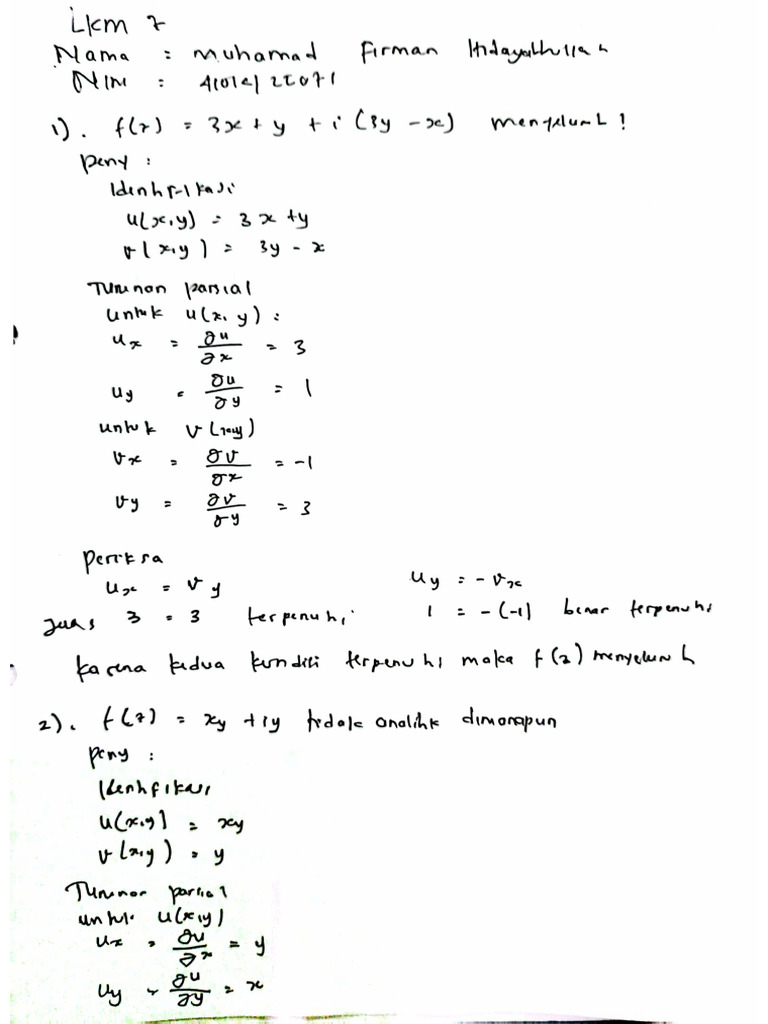 Lkm 7
Nama : Muhamad Firman Hidayathullah
NIM :
1). f(z) = 3x + y + i (3y - x) menyeluruh!
peny :
Identifikasi
u(x,y) = 3x + y
v(x,y) = 3y - x
Turunan parsial
untuk u(x,y) :
ux = ∂u/∂x = 3
uy = ∂u/∂y = 1
untuk v(x,y)
vx = ∂v/∂x = -1
vy = ∂v/∂y = 3
Periksa
ux = vy uy = -vx
3 = 3 terpenuhi 1 = -(-1) benar terpenuhi
karena kedua kondisi terpenuhi maka f(z) menyeluruh
2). f(z) = xy + iy tidak analitik dimanapun
peny :
Identifikasi
u(x,y) = xy
v(x,y) = y
Turunan parsial
untuk u(x,y)
ux = ∂u/∂x = y
uy = ∂u/∂y = x